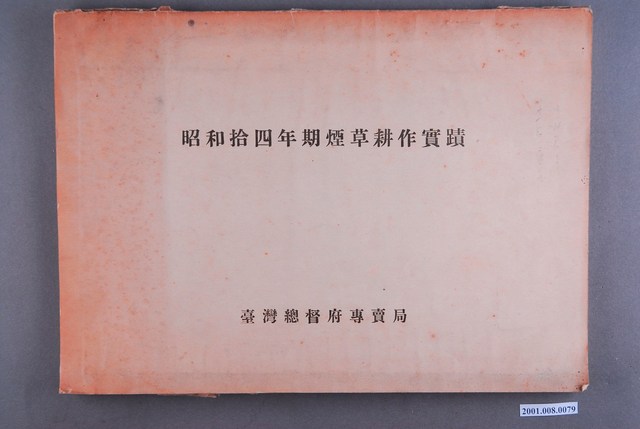 昭和拾四年期煙草耕作實蹟
臺灣總督府專賣局
2001.008.0079